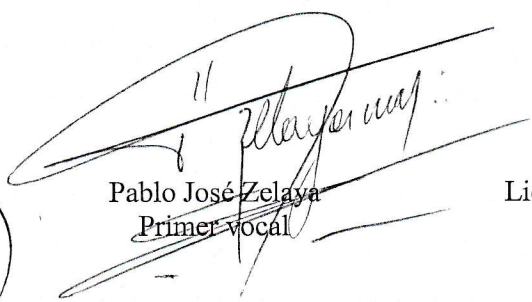 Pablo José Zelaya
Primer vocal